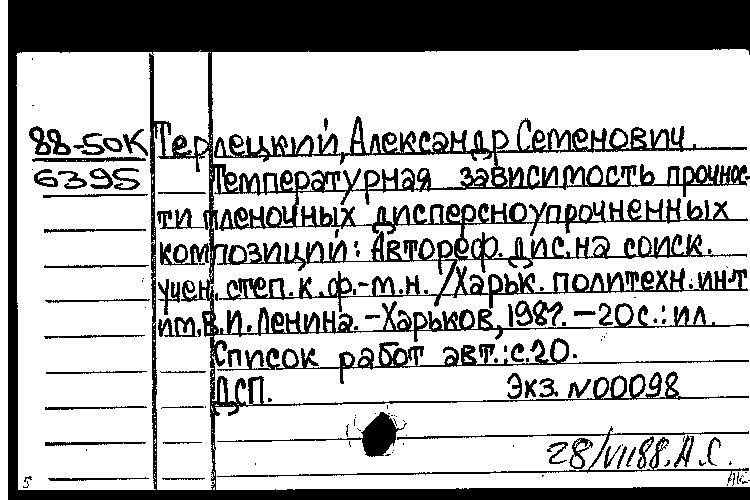 88-50К Терлецкий, Александр Семенович.
6395 Температурная зависимость прочнос-
ти пленочных дисперсноупрочненных
композиций: Автореф. дис. на соиск.
учен. степ. к. ф.-м. н. /Харьк. политехн. ин-т
им. В. И. Ленина. - Харьков, 1987. - 20 с.: ил.
Список работ авт.: с. 20.
ДСП. Экз. N 00098
28/VII 88. А. С.
5